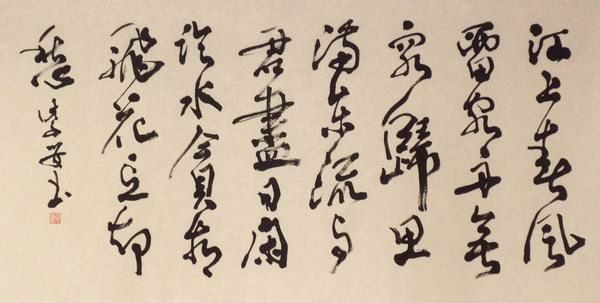 江上春風
留客舟無
窮歸思
滿東流與
君盡日閑
临水貪看
飛花忘却
愁